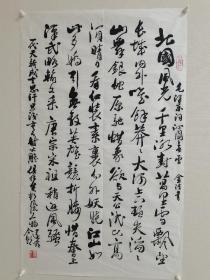 北国风光千里冰封万里雪飘望
长城内外唯余莽莽大河上下顿失滔滔
山舞银蛇原驰蜡象欲与天公试比高
须晴日看红装素裹分外妖娆江山如
此多娇引无数英雄竞折腰惜秦皇
汉武略输文采唐宗宋祖稍逊风骚
一代天骄成吉思汗只识弯弓射大雕俱往矣数风流人物
毛泽东词沁园春雪